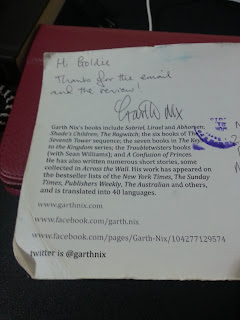 Hi Goldie
Thanks for the email
and the review!
Garth Nix
Garth Nix's books include Sabriel, Lirael and Abhorsen;
Shade's Children; The Ragwitch; the six books of The
Seventh Tower sequence; the seven books in The Keys
to the Kingdom series; the Troubletwisters books
(with Sean Williams); and A Confusion of Princes.
He has also written numerous short stories, some
collected in Across the Wall. His work has appeared on
the bestseller lists of the New York Times, The Sunday
Times, Publishers Weekly, The Australian and others,
and is translated into 40 languages.
www.garthnix.com
www.facebook.com/garth.nix
www.facebook.com/pages/Garth-Nix/104277129574
twitter is @garthnix